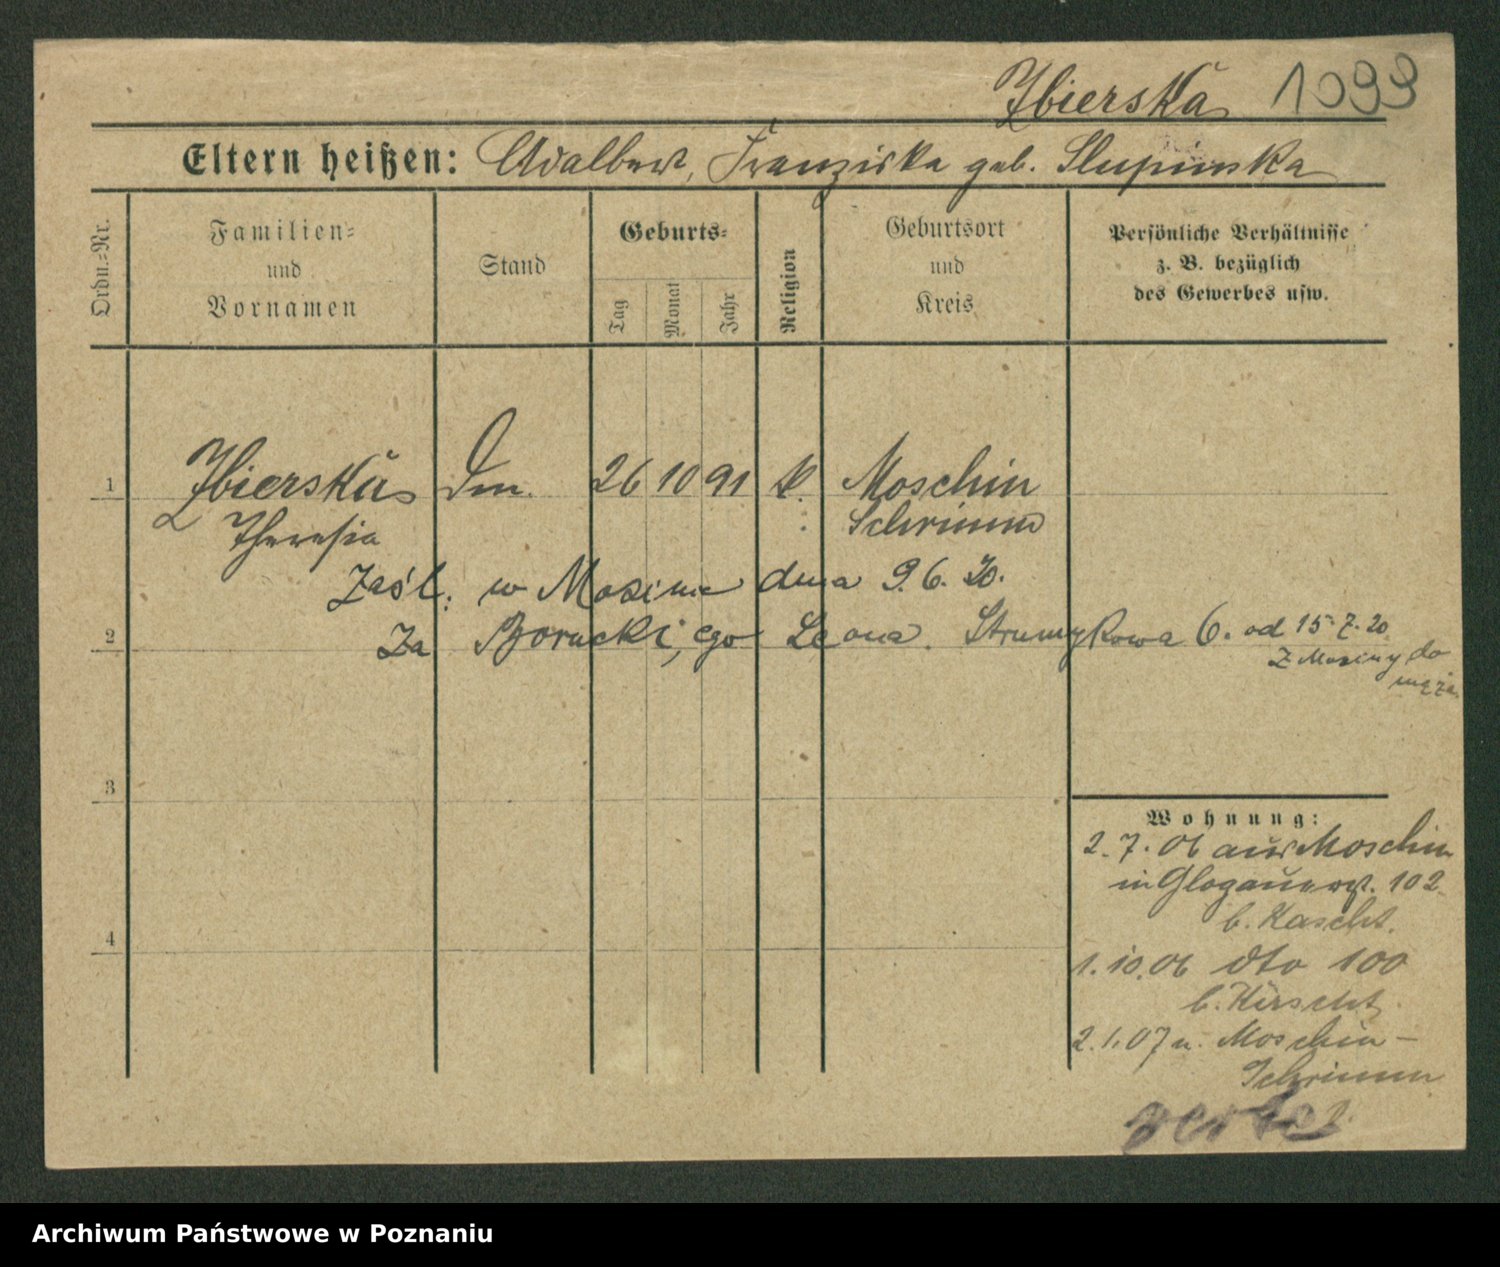 Zbierska 1099
Eltern heißen: Adalbert, Franziska geb. Slupinska
Ordn.-Nr.
Familien-
und
Vornamen
Stand
Geburts-
Tag
Monat
Jahr
Religion
Geburtsort
und
Kreis
Persönliche Verhältnisse
z. B. bezüglich
des Gewerbes usw.
1 Zbierska 26 10 91 k. Moschin
Theresia Schrimm
Zaśl. w Mosinie dnia 9.6.20.
2 Za Borucki, ego Leona. Strumykowa 6. od 15.7.20
Z Mosiny do
męża
3
Wohnung:
2.7.06 aus Moschin
in Glogauerst. 102
4
1.10.06 dto 100
2.1.07 n. Moschin -
Schrimm
Archiwum Państwowe w Poznaniu